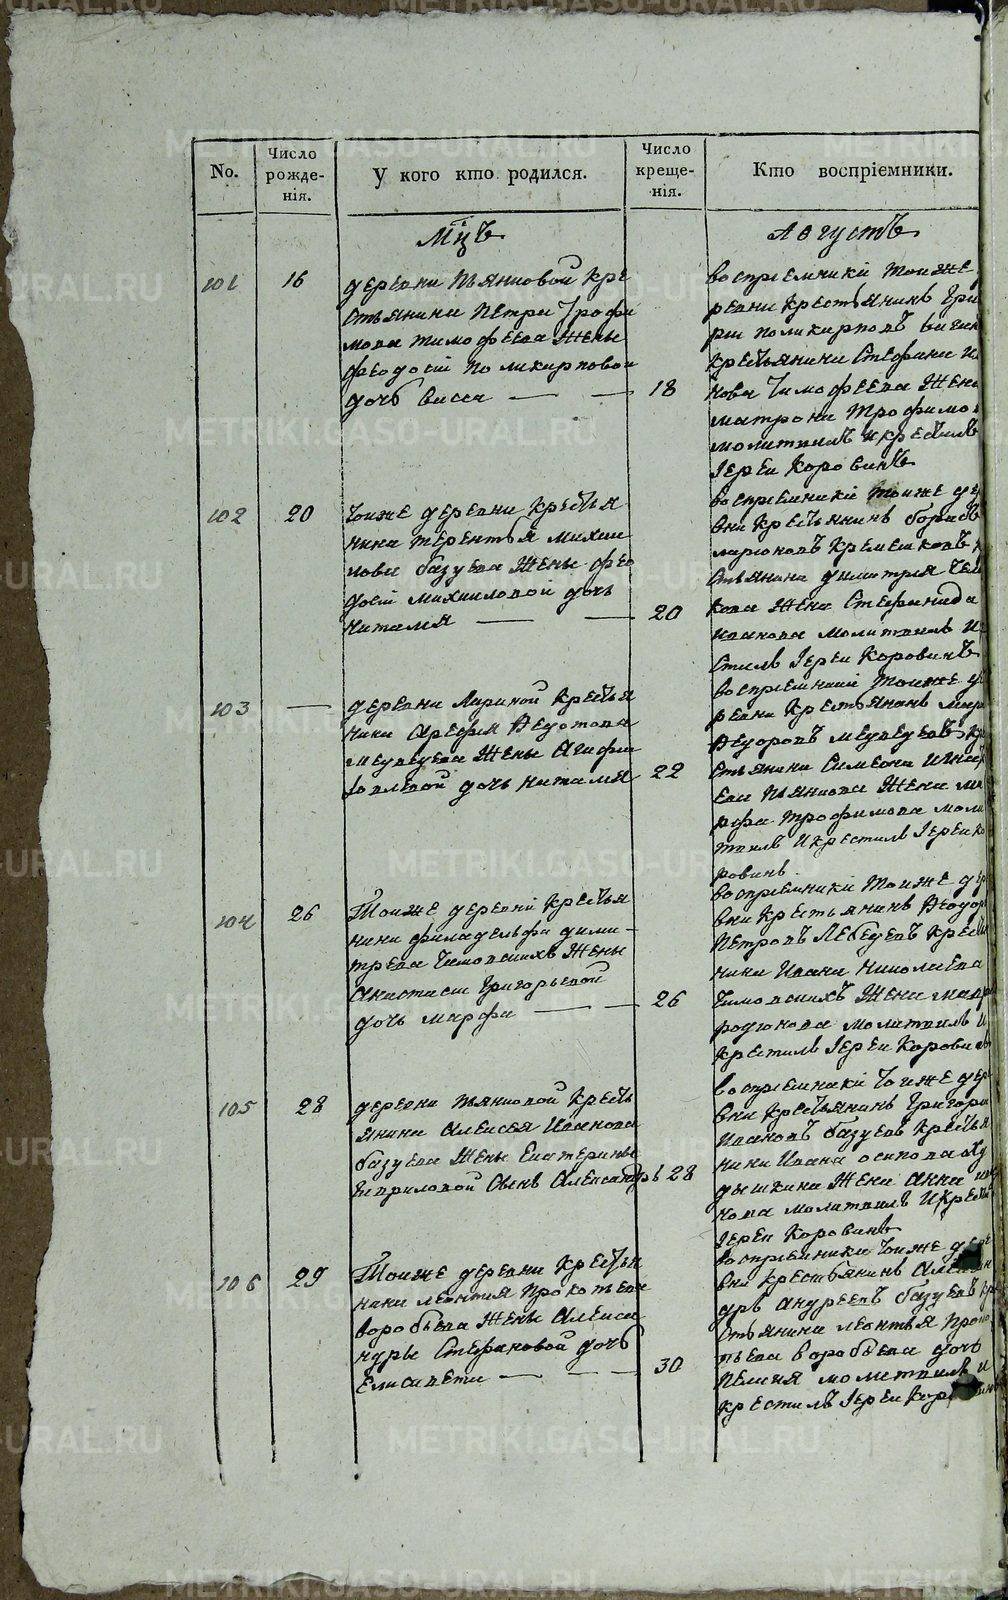 No.
Число рожде- нія.
У кого кто родился.
Число креще- нія.
Кто воспріемники.
Мцъ
Августъ
101
16
деревни Пьянковой кре
стьянина Петра Трофи
мова Тимофеева жены
Феодосіи Поликарповой
дочь Васса
18
воспріемники тоиже
ревни крестьянинъ Гри
рии Поликарповъ
крестьянина Стефана
нова Тимофеева жена
матрона Трофимо
молитвилъ и крестилъ
Іереи Коровинъ
102
20
тоиже деревни крестья
нина Терентья Михаи
лова базуева жены фео
досіи михаиловой дочь
Наталя
20
воспріемники тоиже де
вни крестьянинъ борисъ
ларионовъ Кремешковъ
стьянина димитрия
кова жена Стефанида
иванова молитвилъ и
стилъ Іереи Коровинъ
103
деревни Лариной крестья
нина Арефы Федотова
медведева жены Агафи
Іовлевой дочь наталя
22
воспріемники тоиже де
ревни крестьянинъ
Федоровъ медведевъ кр
стьянина Симеона игнат
ева Пьянкова жена ма
рфа трофимова моли
твилъ и крестилъ Іереи ко
ровинъ
104
26
Тоиже деревни крестья
нина филадельфа дими
треева Чимовскихъ жены
Анастасіи григорьевой
дочь марфа
26
воспріемники тоиже де
вни крестьянинъ Федор
Петровъ Лебедевъ крест
нина Ивана Николаева
Чимовскихъ жена мавр
родионова молитвилъ и
крестилъ Іереи Корови
105
28
деревни Пьянковой кресть
янина Алексея Иванова
базуева жены Екатерины
гавриловой сынъ Александръ
28
воспріемники тоиже дер
вни крестьянинъ Григори
Ивановъ базуевъ крестья
нина Ивана осипова Ху
дышкина жена Анна ива
нова молитвилъ и крести
Іереи Коровинъ
106
29
Тоиже деревни крестьян
нина леонтия прокопьева
воробьева жены Алекса
ндры Стефановой дочь
Елисавета
30
воспріемники тоиже дере
вни крестьянинъ Алексан
дръ андреевъ базуевъ кре
стьянина леонтья Проко
пьева воробьева дочь
Пелагия молитвилъ и
крестилъ Іереи Кор
METRIKI.GASO-URAL.RU